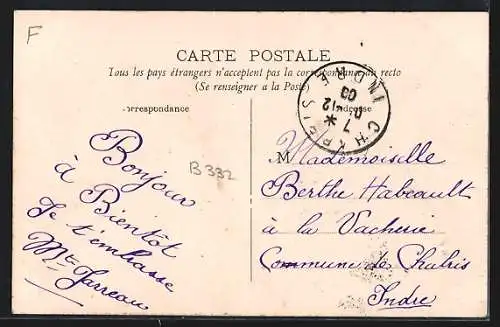 F
CARTE POSTALE
Tous les pays étrangers n'acceptent pas la correspondance au recto
(Se renseigner à la Poste)
Correspondance
Adresse
CHABRIS INDRE
7 12
09
Bonjour
à Bientôt
Je t'embrasse
Mte Jarreau
B 332
Mademoiselle
Berthe Habeault
à la Vacherie
Commune de Chabris
Indre